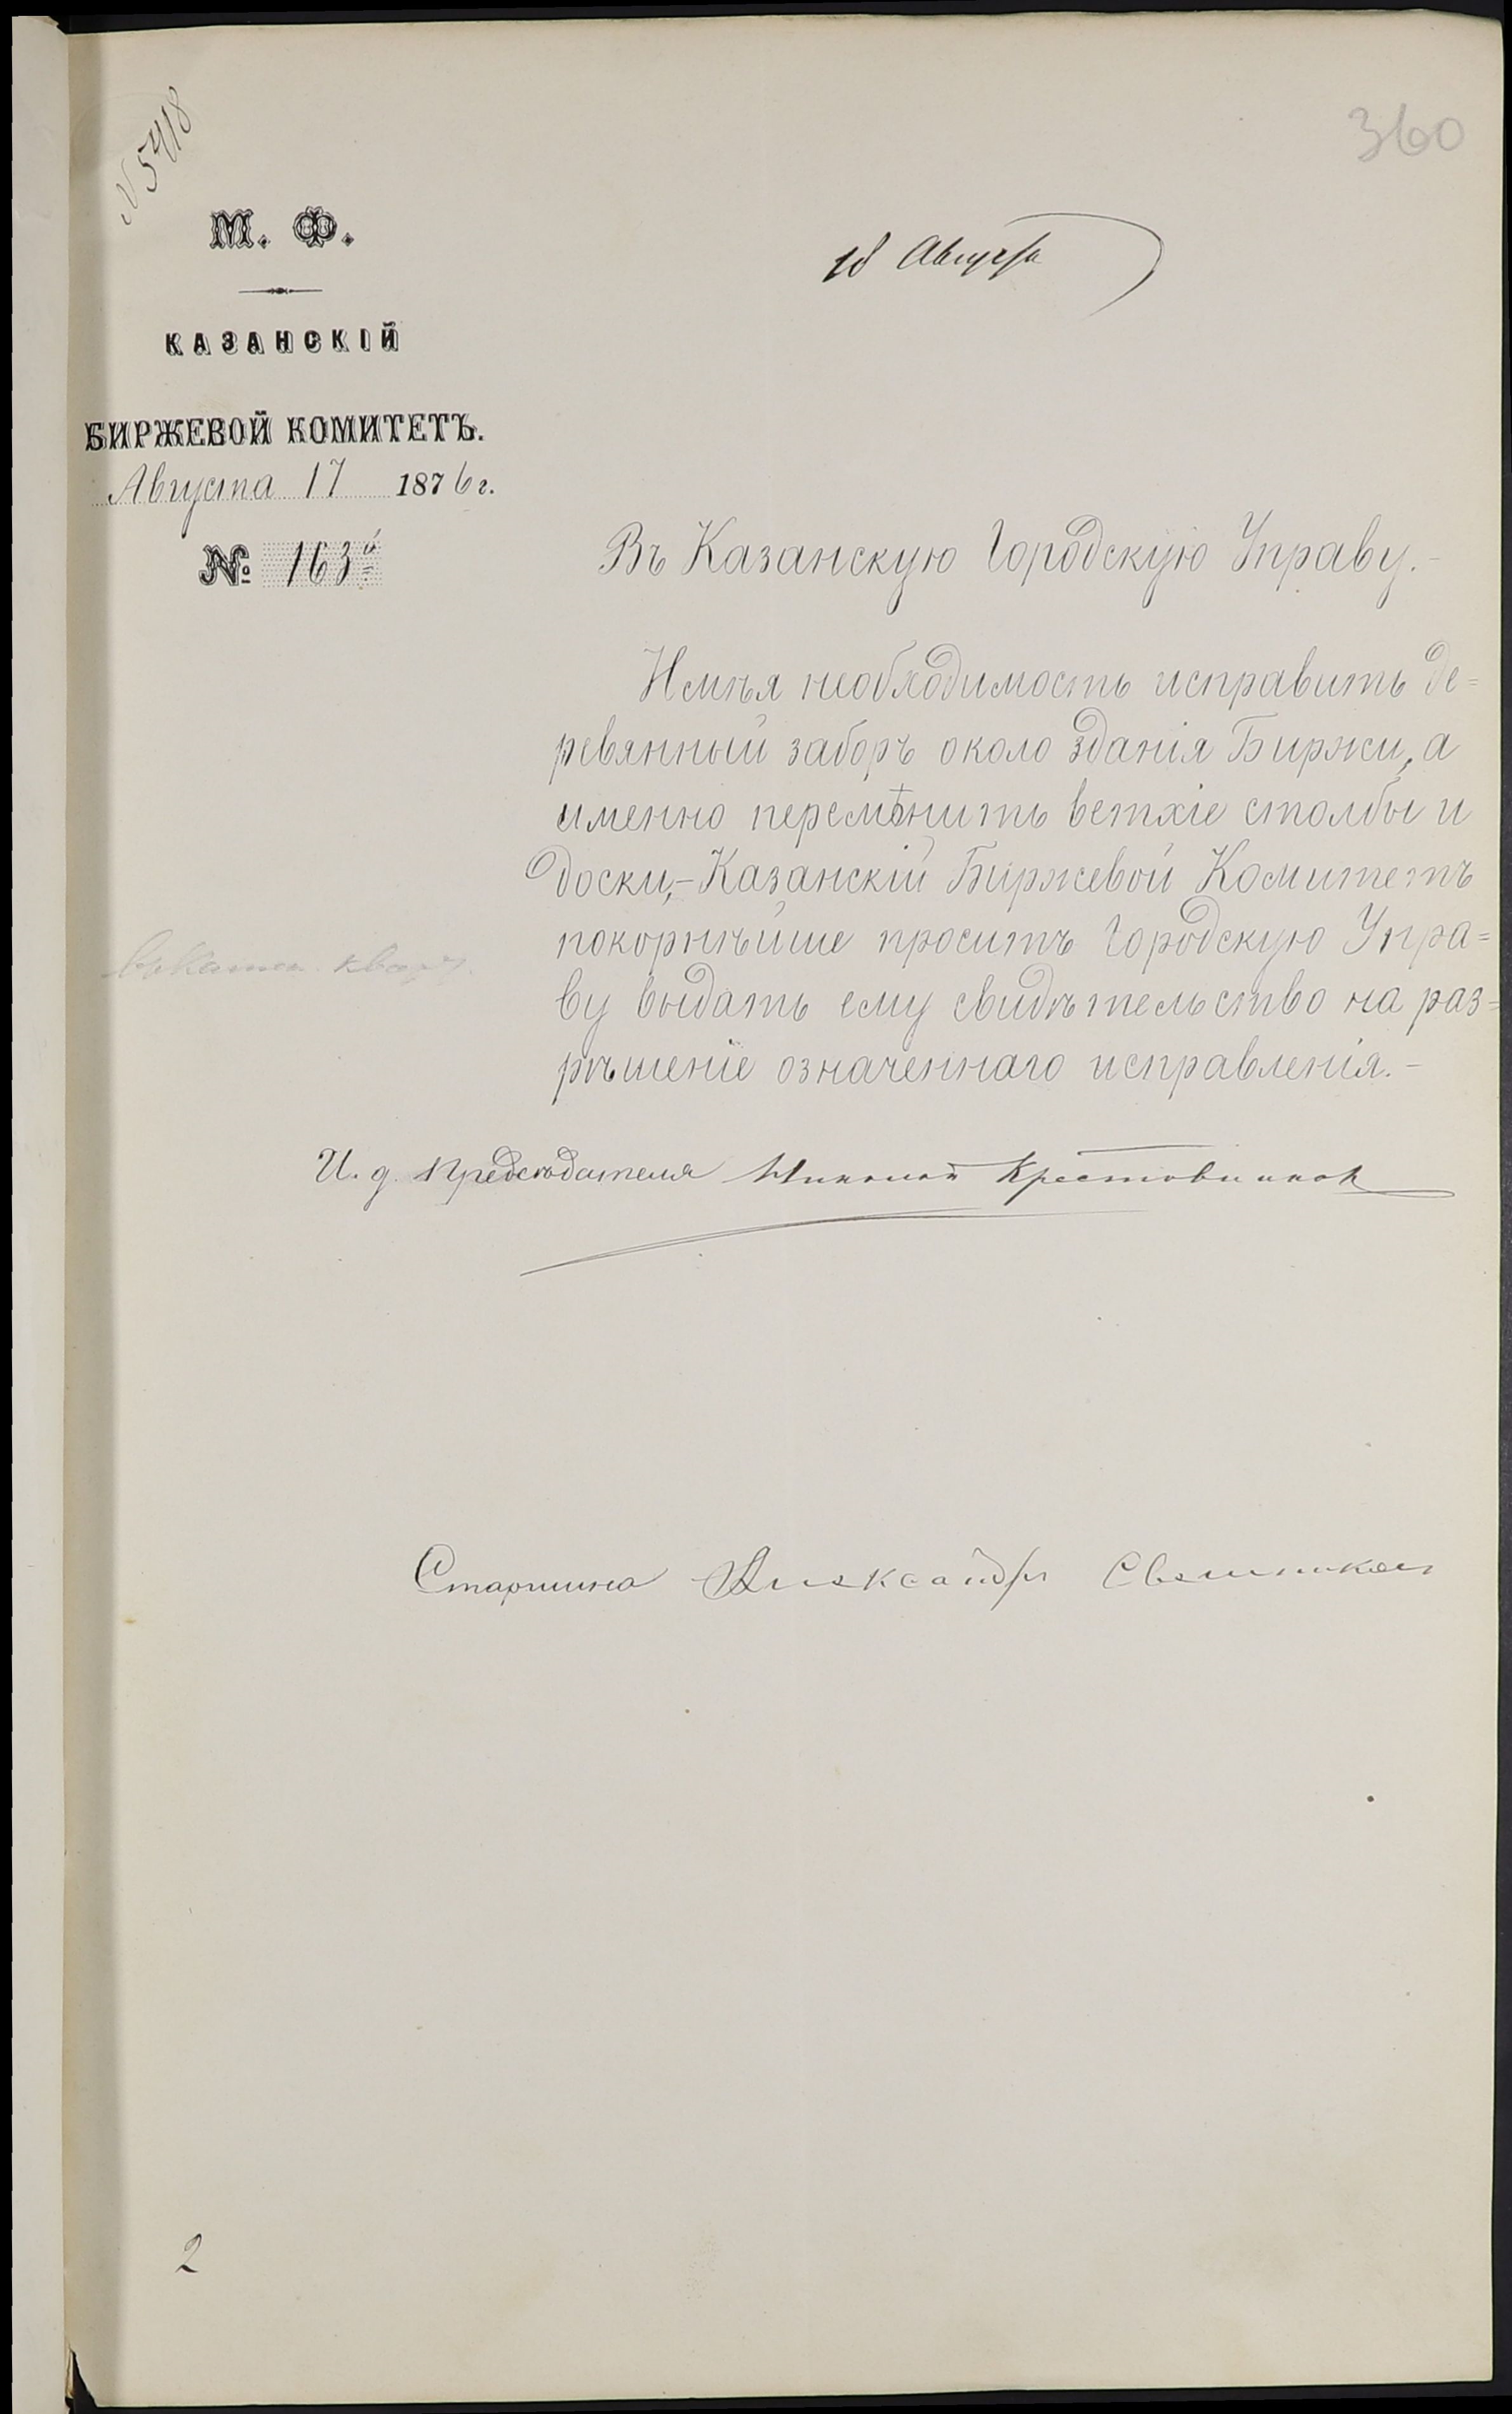 N 5418
360
М. Ф.
18 Августа
КАЗАНСКІЙ
БИРЖЕВОЙ КОМИТЕТЪ.
Августа 17 1876 г.
№ 163й
Въ Казанскую Городскую Управу.-
Имѣя необходимость исправить де=
ревянный заборъ около зданія Биржи, а
именно перемѣнить ветхіе столбы и
доски,- Казанскій Биржевой Комитетъ
покорнѣйше проситъ Городскую Упра=
ву выдать ему свидѣтельство на раз=
рѣшеніе означеннаго исправленія.-
И. д. Предсѣдателя Николай Крестовников
Старшина Александръ Свешников
2